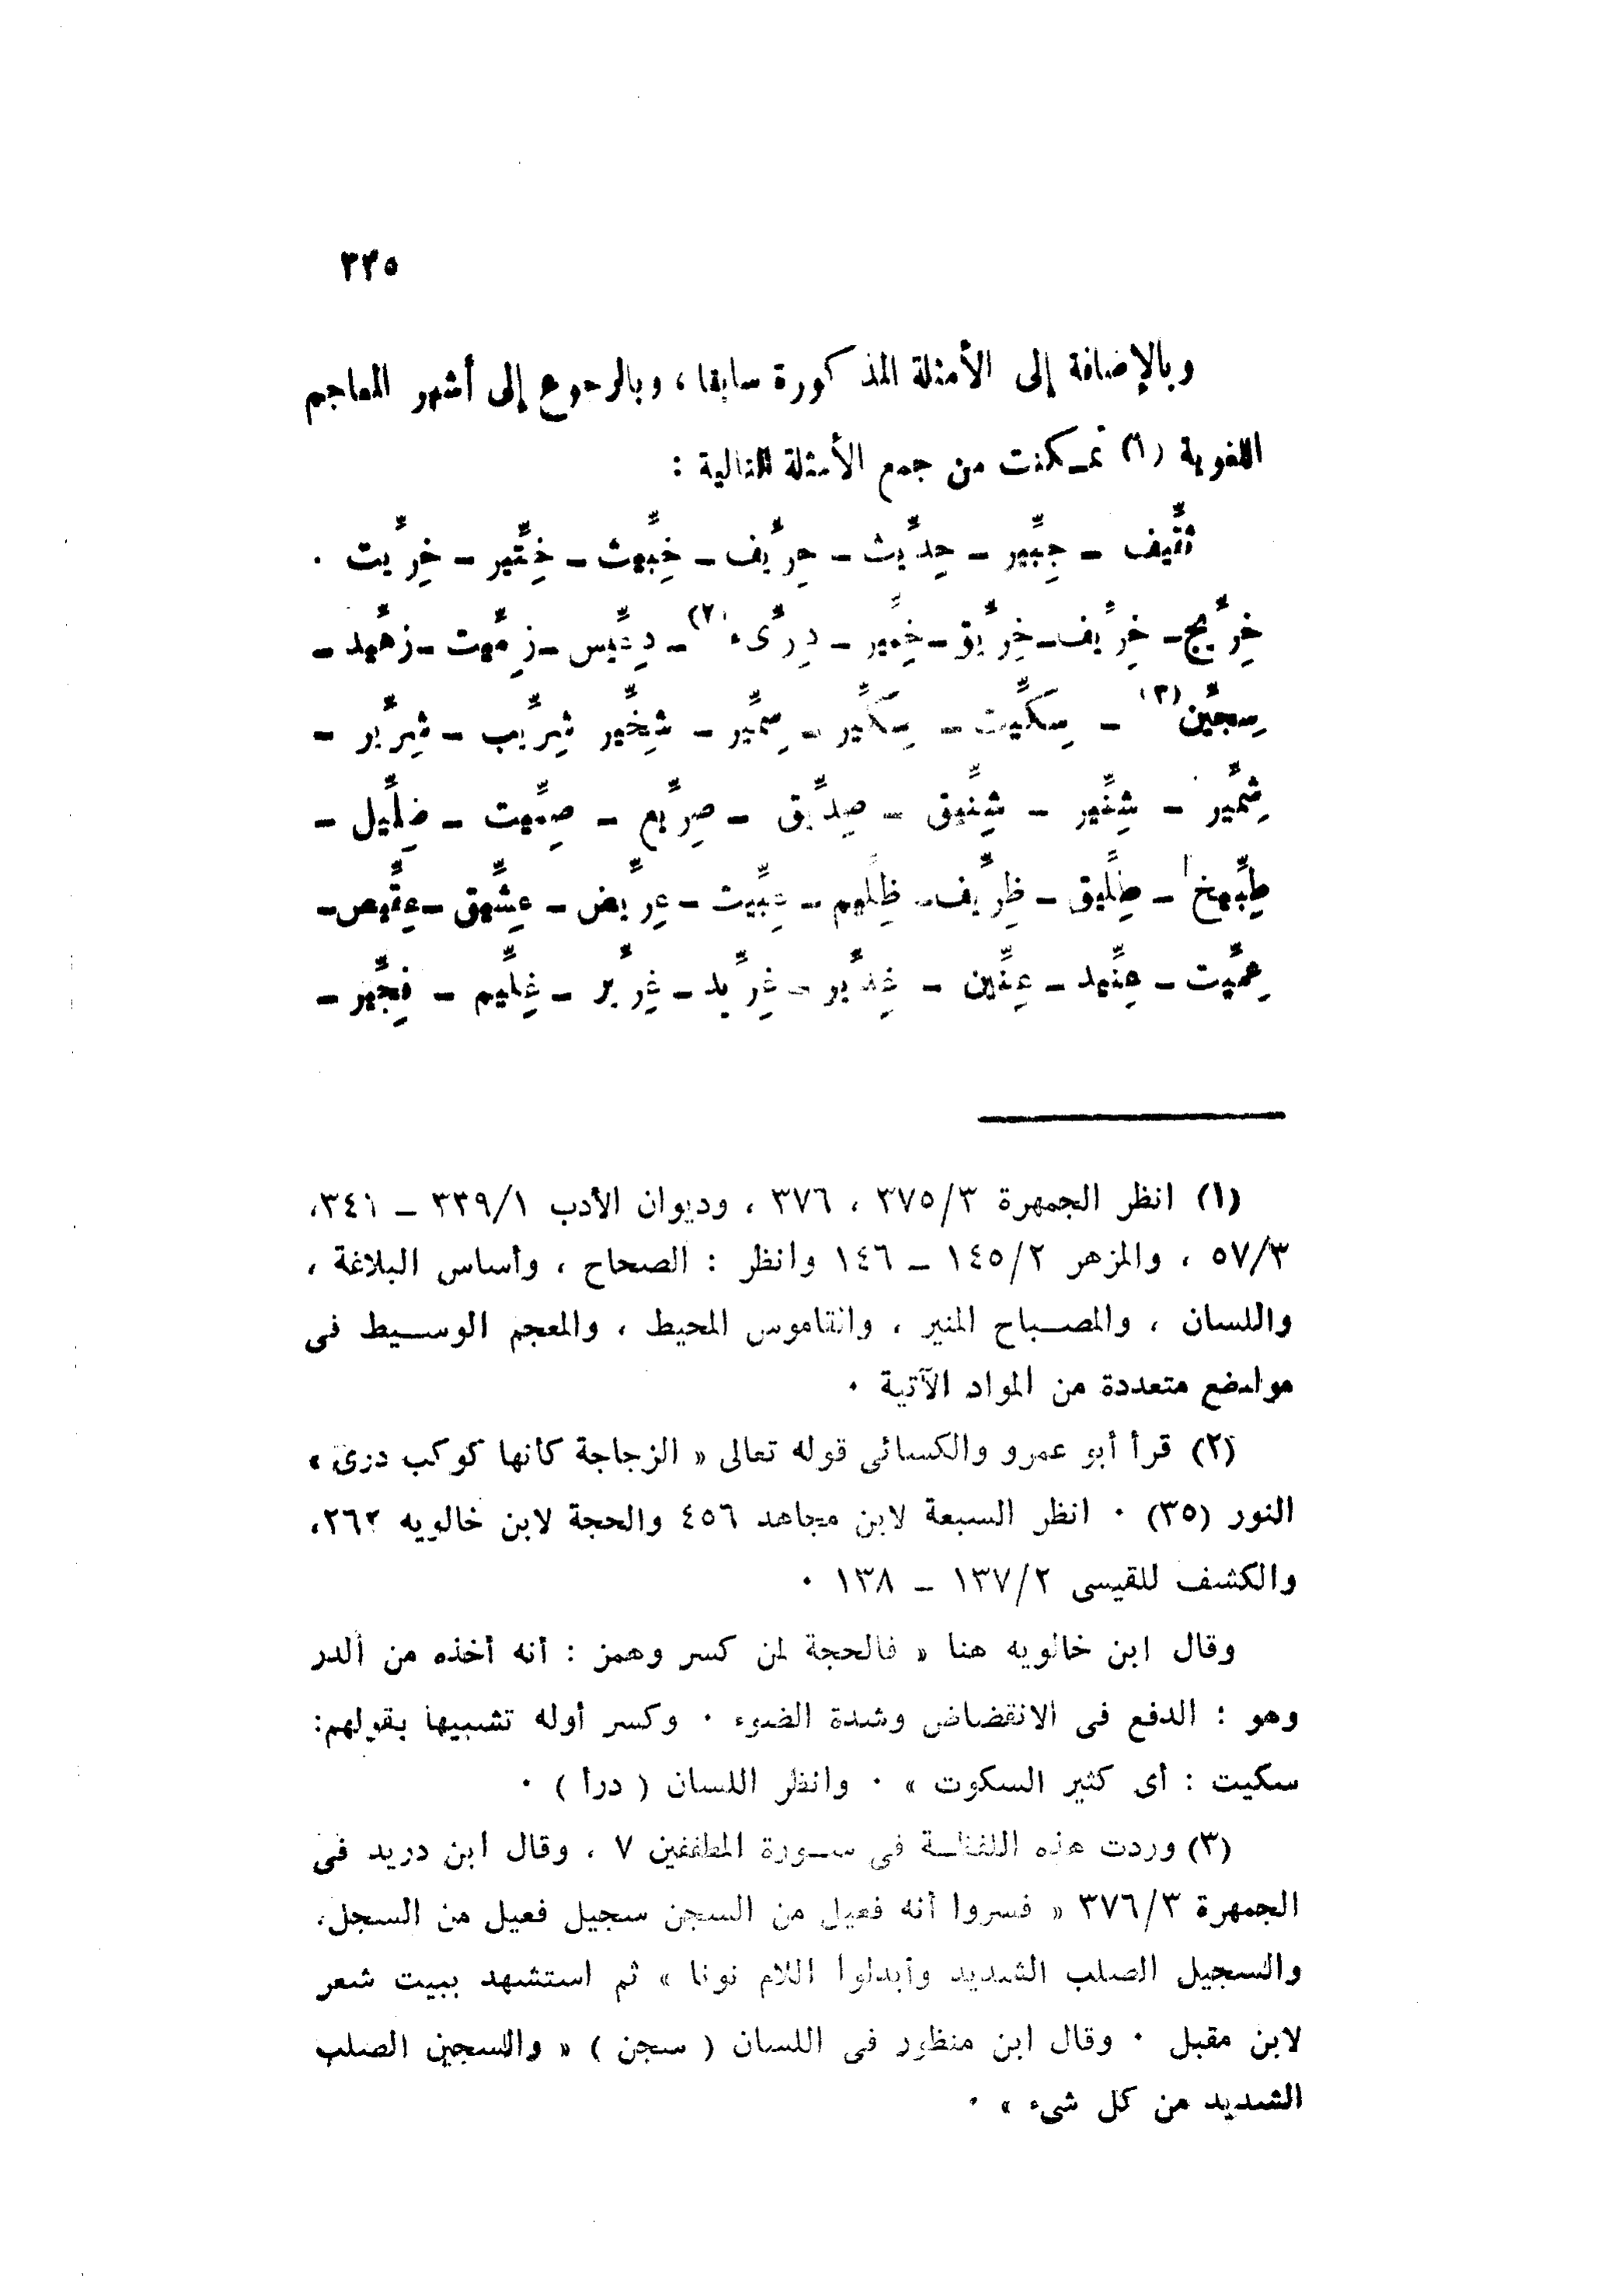 ٣٣٥
وبالإضافة إلى الأمثلة المذكورة سابقا ، وبالرجوع إلى أشهر المعاجم
اللغوية (١) تمكنت من جمع الأمثلة التالية :
ثِقِّيف – جِبِّير – حِدِّيث – حِرِّيف – خِبِّيث – خِتِّير – خِرِّيت .
خِرِّيج – خِرِّيف – خِرِّيق – خِمِّير – دِرِّىء (٢) – دِعِّيس – زِمِّيت – زِهِّيد –
سِجِّين (٣) – سِكِّيت – سِكِّير – سِمِّير – شِخِّير شِرِّيب – شِرِّير –
شِمِّير – شِنِّير – شِنِّيق – صِدِّيق – صِرِّيع – صِمِّيت – ضِلِّيل –
طِبِّيخ – طِلِّيق – ظِرِّيف – ظِلِّيم – عِبِّيث – عِرِّيض – عِشِّيق – عِقِّيص –
عِمِّيت – عِنِّيد – عِنِّين – غِدِّير – غِرِّيد – غِرِّير – غِلِّيم – فِجِّير –
(١) انظر الجمهرة ٣/٣٧٥ ، ٣٧٦ ، وديوان الأدب ١/٣٣٩ – ٣٤١،
٣/٥٧ ، والمزهر ٢/١٤٥ – ١٤٦ وانظر : الصحاح ، وأساس البلاغة ،
واللسان ، والمصباح المنير ، والقاموس المحيط ، والمعجم الوسيط فى
مواضع متعددة من المواد الآتية .
(٢) قرأ أبو عمرو والكسائى قوله تعالى « الزجاجة كأنها كوكب درىء »
النور (٣٥) . انظر السبعة لابن مجاهد ٤٥٦ والحجة لابن خالويه ٢٦٢،
والكشف للقيسى ٢/١٣٧ – ١٣٨ .
وقال ابن خالويه هنا « فالحجة لمن كسر وهمز : أنه أخذه من الدر
وهو : الدفع فى الانقضاض وشدة الضوء . وكسر أوله تشبيها بقولهم:
سكيت : أى كثير السكوت » . وانظر اللسان ( درأ ) .
(٣) وردت هذه اللفظة فى سورة المطففين ٧ ، وقال ابن دريد فى
الجمهرة ٣/٣٧٦ « فسروا أنه فعيل من السجن سجيل فعيل من السجل،
والسجيل الصلب الشديد وأبدلوا اللام نونا » ثم استشهد ببيت شعر
لابن مقبل . وقال ابن منظور فى اللسان ( سجن ) « والسجين الصلب
الشديد من كل شىء » .